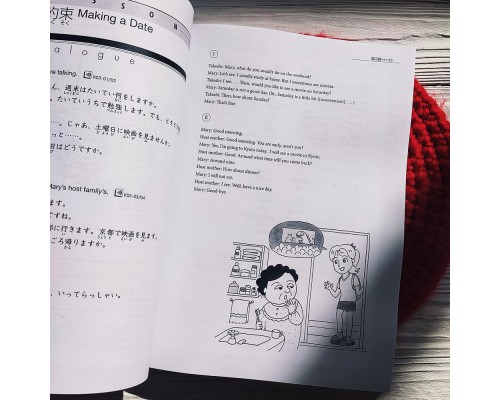 L E S S O N
約束 Making a Date
やくそく
a l o g u e
re talking. K03-01/02
ん、週末はたいてい何をしますか。
。たいていうちで勉強します。でも、ときどき
っと……。じゃあ、土曜日に映画を見ませんか。
曜日はどうですか。
Mary's host family's. K03-03/04
ます。
ですね。
都に行きます。京都で映画を見ます。
ごろ帰りますか。
。いってらっしゃい。
I
Takeshi: Mary, what do you usually do on the weekend?
Mary: Let's see. I usually study at home. But I sometimes see movies.
Takeshi: I see . . . Then, would you like to see a movie on Saturday?
Mary: Saturday is not a good day. (lit., Saturday is a little bit [inconvenient] . . .)
Takeshi: Then, how about Sunday?
Mary: That's fine.
II
Mary: Good morning.
Host mother: Good morning. You are early, aren't you?
Mary: Yes, I'm going to Kyoto today. I will see a movie in Kyoto.
Host mother: Good. Around what time will you come back?
Mary: Around nine.
Host mother: How about dinner?
Mary: I will not eat.
Host mother: I see. Well, have a nice day.
Mary: Good-bye.